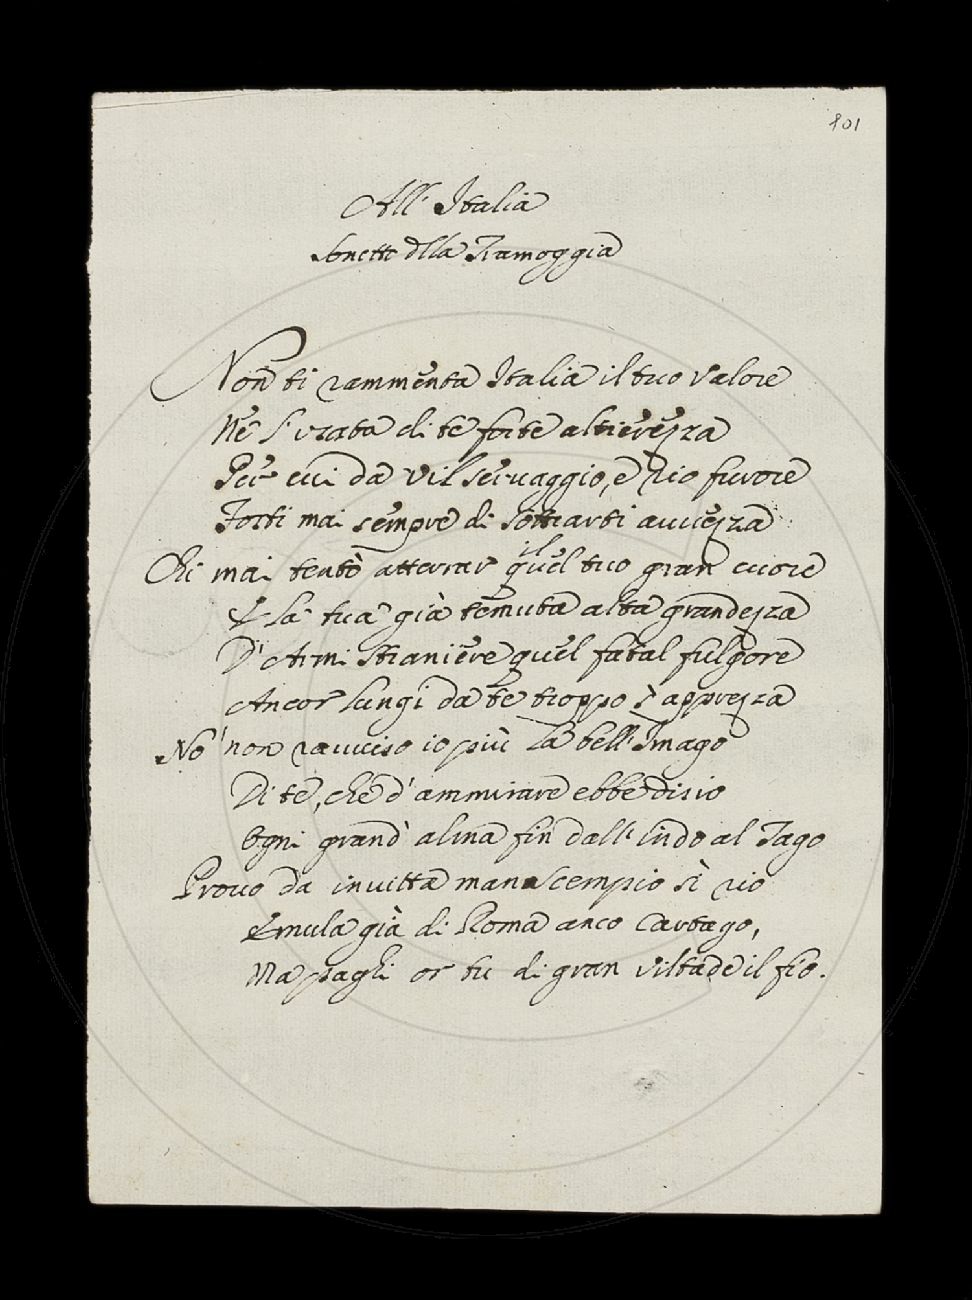 801
All' Italia
Sonetto della Ramoggia
Non ti rammenta Italia il tuo valore
Ne l'usata di te forte altierezza
Per cui da vil servaggio, e rio furore
Fosti mai sempre di sottrarti avvezza
Chi mai tentò atterrar quel il tuo gran cuore
E la tua già temuta alta grandezza
D'Armi straniere quel fatal fulgore
Ancor lungi da te troppo s'apprezza
No' non ravviso io più la bell'Imago
Di te, che d'ammirare ebbe disio
Ogni grand' alma fin dall'indo al Tago
Provò da invitta mano scempio sì rio
Emula già di Roma anco Cartago,
Ma paghi or tu di gran viltade il fio.